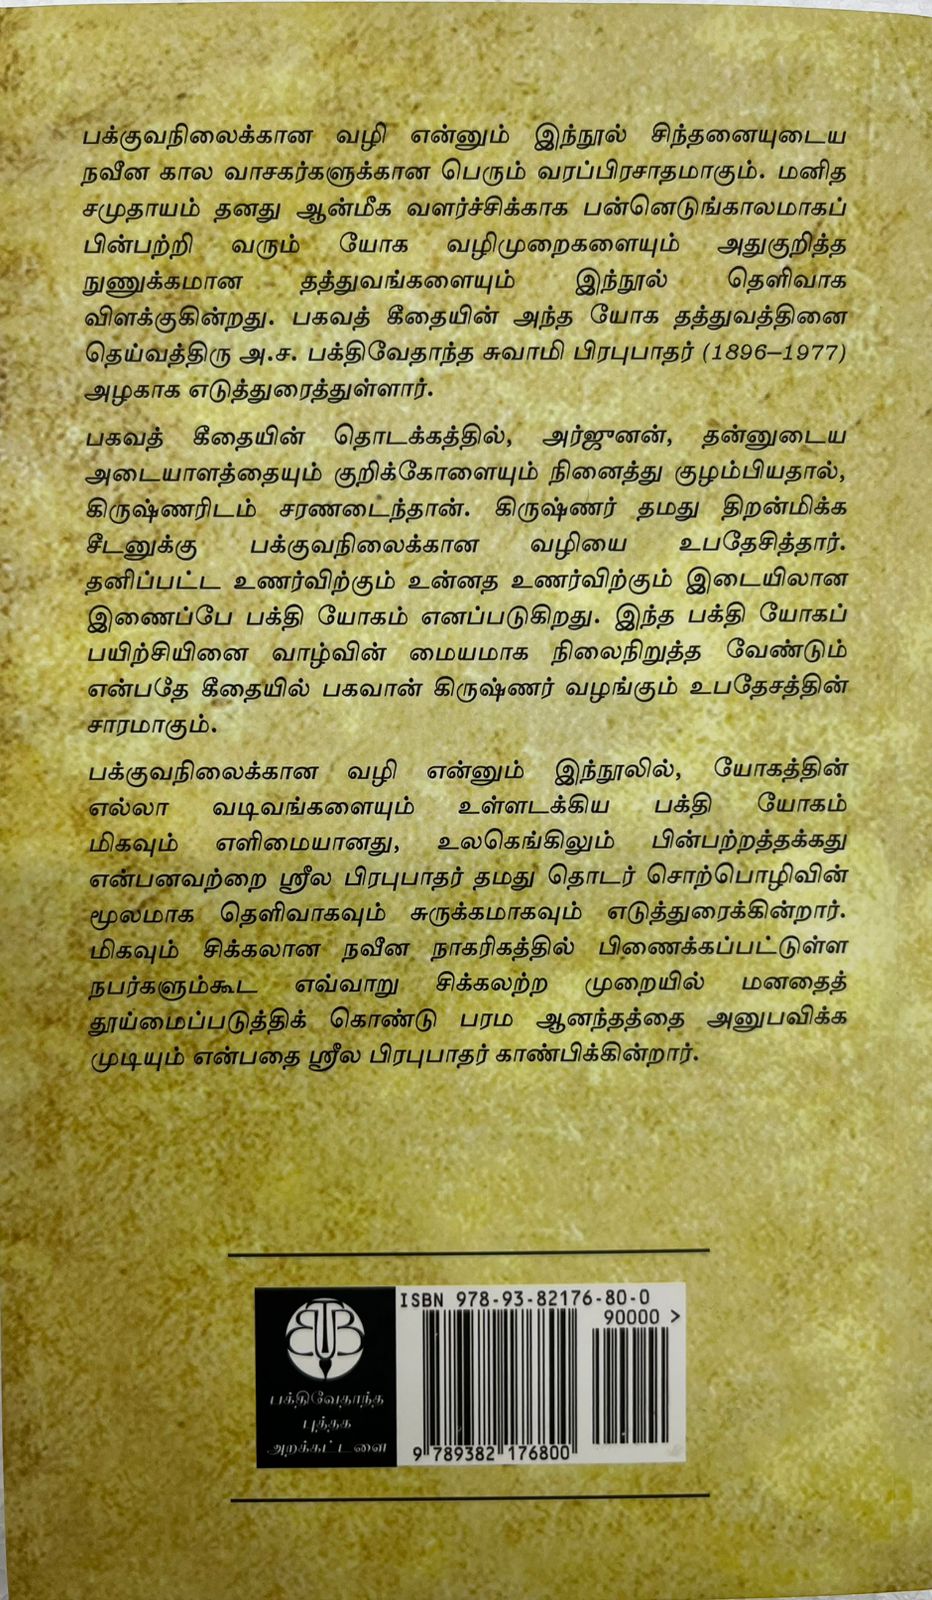 பக்குவநிலைக்கான வழி என்னும் இந்நூல் சிந்தனையுடைய
நவீன கால வாசகர்களுக்கான பெரும் வரப்பிரசாதமாகும். மனித
சமுதாயம் தனது ஆன்மீக வளர்ச்சிக்காக பன்னெடுங்காலமாகப்
பின்பற்றி வரும் யோக வழிமுறைகளையும் அதுகுறித்த
நுணுக்கமான தத்துவங்களையும் இந்நூல் தெளிவாக
விளக்குகின்றது. பகவத் கீதையின் அந்த யோக தத்துவத்தினை
தெய்வத்திரு அ.ச. பக்திவேதாந்த சுவாமி பிரபுபாதர் (1896–1977)
அழகாக எடுத்துரைத்துள்ளார்.
பகவத் கீதையின் தொடக்கத்தில், அர்ஜுனன், தன்னுடைய
அடையாளத்தையும் குறிக்கோளையும் நினைத்து குழம்பியதால்,
கிருஷ்ணரிடம் சரணடைந்தான். கிருஷ்ணர் தமது திறன்மிக்க
சீடனுக்கு பக்குவநிலைக்கான வழியை உபதேசித்தார்.
தனிப்பட்ட உணர்விற்கும் உன்னத உணர்விற்கும் இடையிலான
இணைப்பே பக்தி யோகம் எனப்படுகிறது. இந்த பக்தி யோகப்
பயிற்சியினை வாழ்வின் மையமாக நிலைநிறுத்த வேண்டும்
என்பதே கீதையில் பகவான் கிருஷ்ணர் வழங்கும் உபதேசத்தின்
சாரமாகும்.
பக்குவநிலைக்கான வழி என்னும் இந்நூலில், யோகத்தின்
எல்லா வடிவங்களையும் உள்ளடக்கிய பக்தி யோகம்
மிகவும் எளிமையானது, உலகெங்கிலும் பின்பற்றத்தக்கது
என்பனவற்றை ஸ்ரீல பிரபுபாதர் தமது தொடர் சொற்பொழிவின்
மூலமாக தெளிவாகவும் சுருக்கமாகவும் எடுத்துரைக்கின்றார்.
மிகவும் சிக்கலான நவீன நாகரிகத்தில் பிணைக்கப்பட்டுள்ள
நபர்களும்கூட எவ்வாறு சிக்கலற்ற முறையில் மனதைத்
தூய்மைப்படுத்திக் கொண்டு பரம ஆனந்தத்தை அனுபவிக்க
முடியும் என்பதை ஸ்ரீல பிரபுபாதர் காண்பிக்கின்றார்.
ISBN 978-93-82176-80-0
90000 >
BTB
பக்திவேதாந்த
புத்தக
அறக்கட்டளை
9 789382 176800